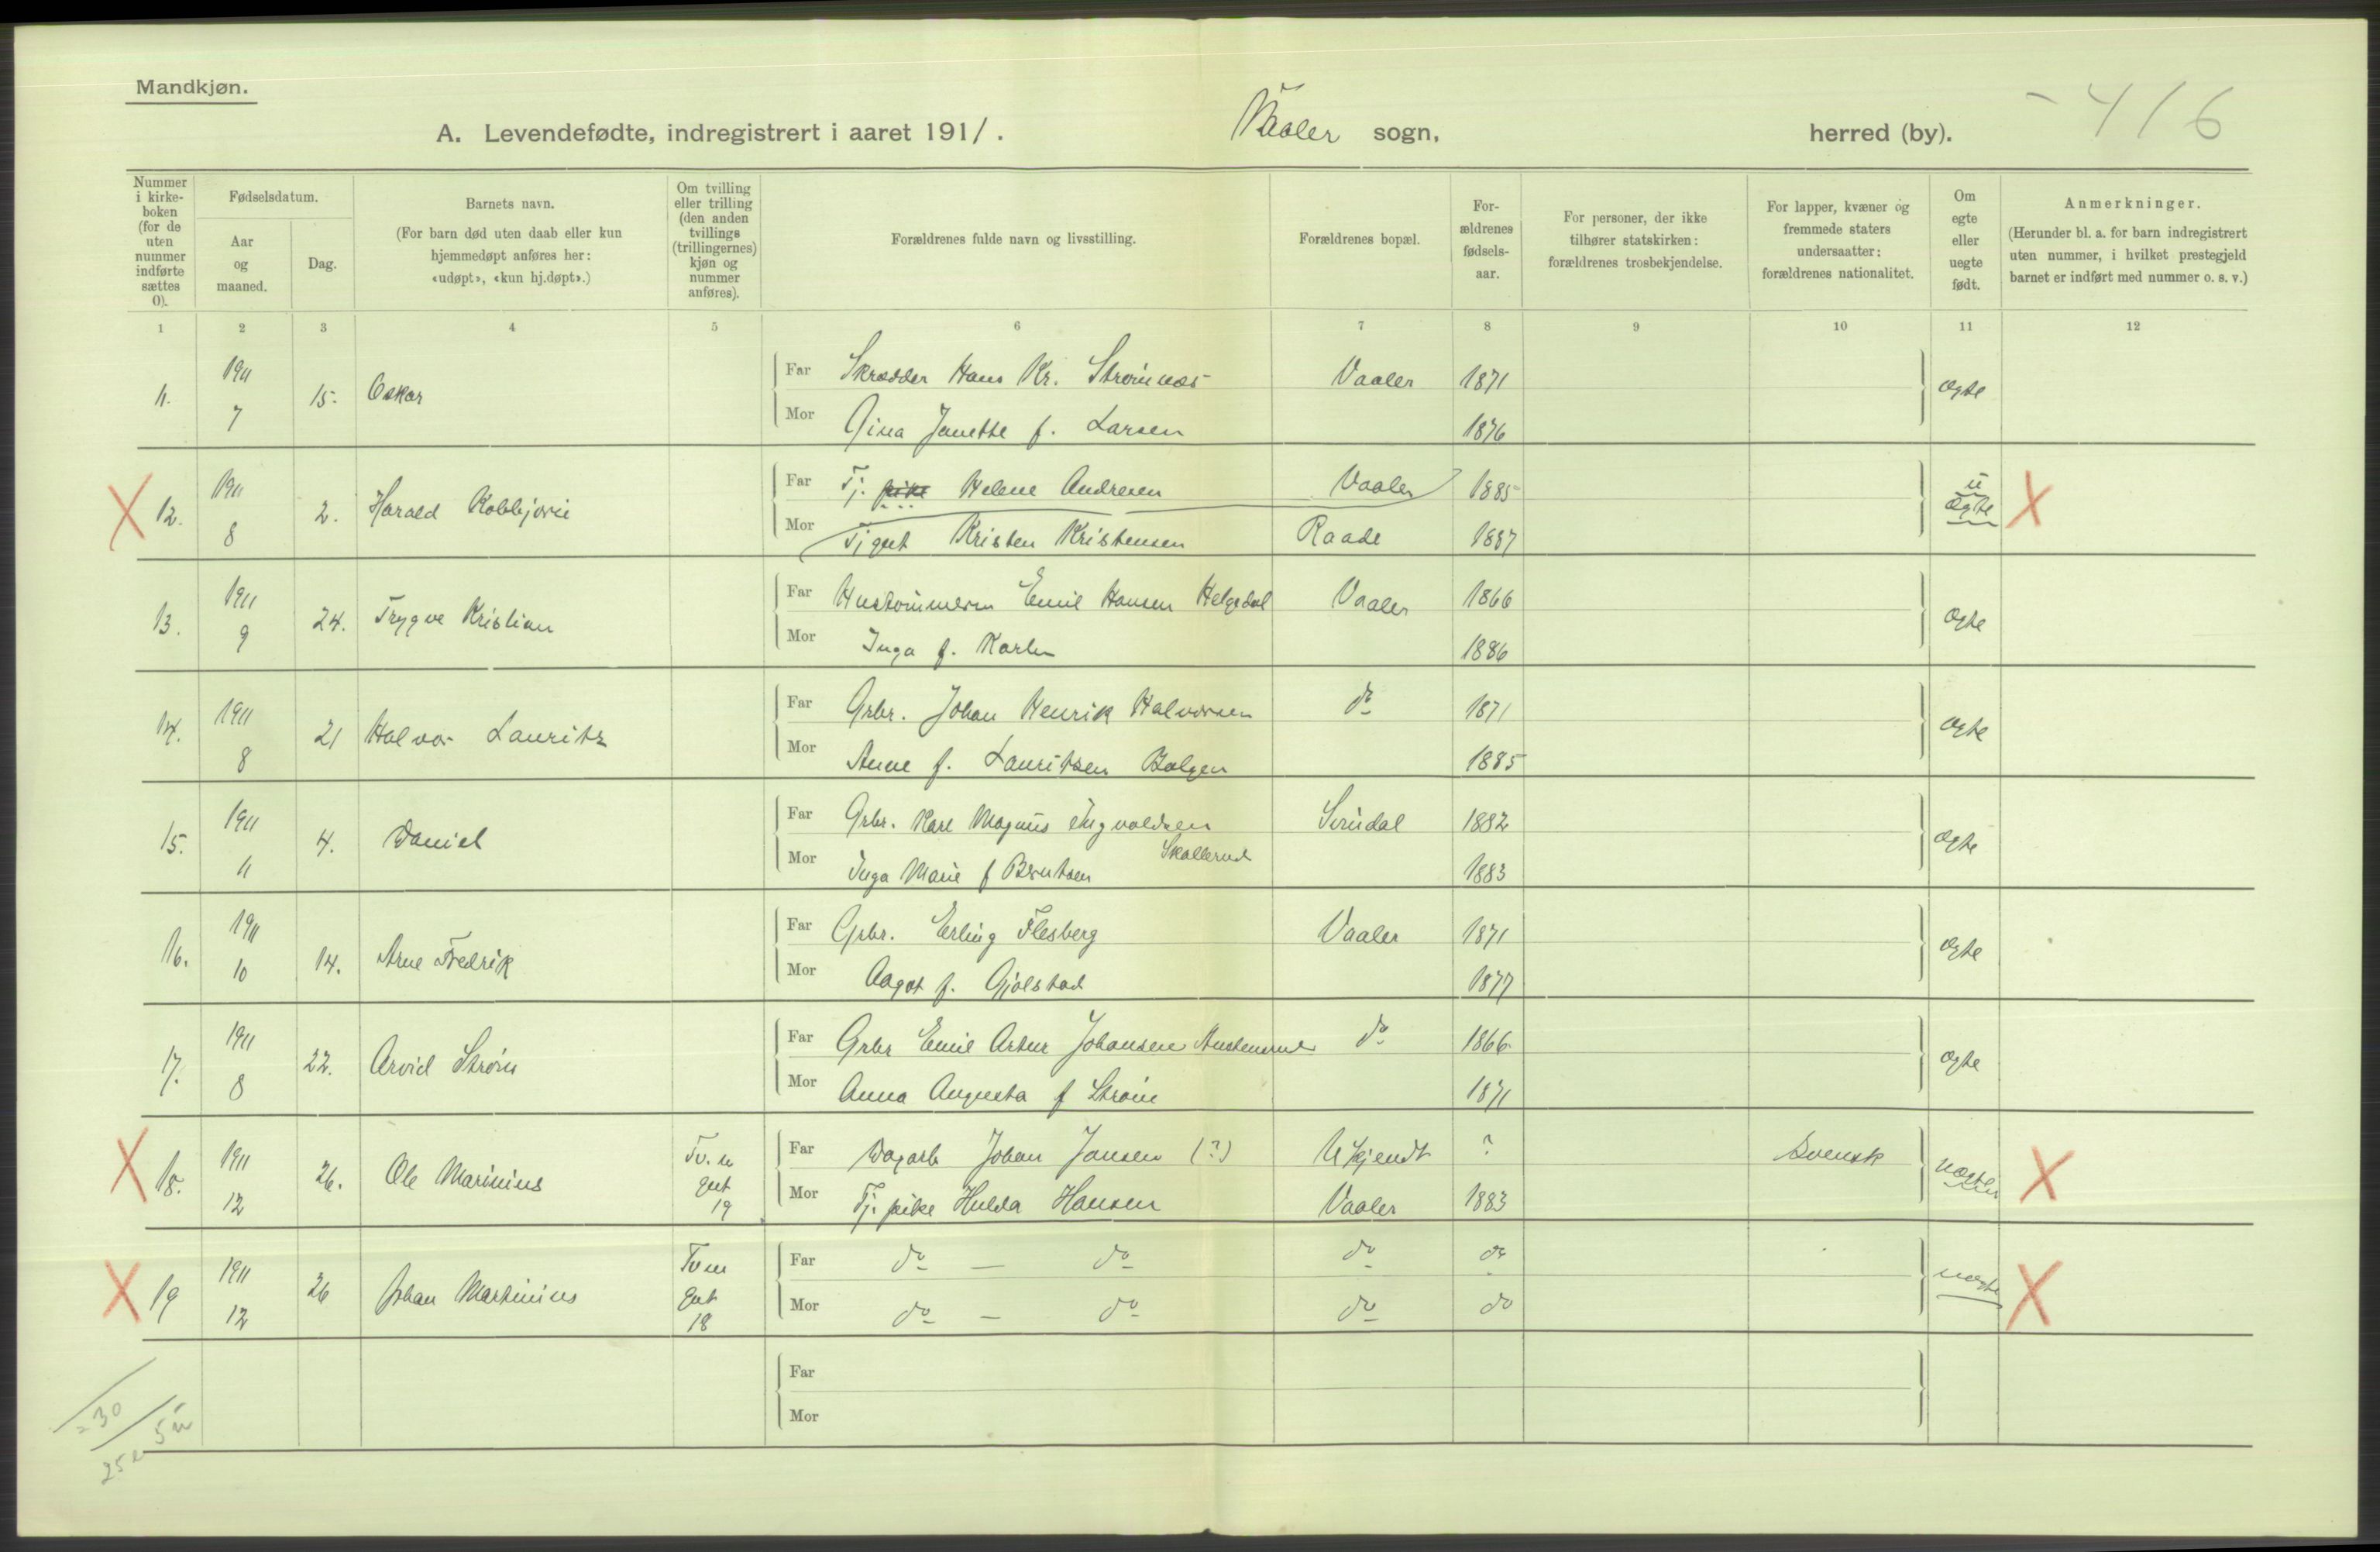 Mandkjøn.
A. Levendefødte, indregistrert i aaret 1911. Vaaler sogn, herred (by).
416
Nummer i kirke-boken (for de uten nummer indførte sættes 0).
Fødselsdatum.
Aar og maaned.
Dag.
Barnets navn.
(For barn død uten daab eller kun hjemmedøpt anføres her: «udøpt», «kun hj.døpt».)
Om tvilling eller trilling (den anden tvillings (trillingernes) kjøn og nummer anføres).
Forældrenes fulde navn og livsstilling.
Forældrenes bopæl.
For-ældrenes fødsels-aar.
For personer, der ikke tilhører statskirken: forældrenes trosbekjendelse.
For lapper, kvæner og fremmede staters undersaatter: forældrenes nationalitet.
Om egte eller uegte født.
Anmerkninger.
(Herunder bl. a. for barn indregistrert uten nummer, i hvilket prestegjeld barnet er indført med nummer o. s. v.)
1 2 3 4 5 6 7 8 9 10 11 12
11. 1911 7 15. Oskar
Far Skrædder Hans Kr. Strømnæs Vaaler 1871 ægte
Mor Gina Janette f. Larsen 1876
X 12. 1911 8 2. Harald
Far Tj. pike Helene Andresen Vaaler 1885 u ægte X
Mor Tj gut Kristen Kristensen Raade 1887
13. 1911 9 24. Trygve Kristian
Far Emil Hansen Vaaler 1866 ægte
Mor Inga f. Karlsen 1886
14. 1911 8 21 Halvor Lauritz
Far Grbr. Johan Henrik Halvorsen do 1871 ægte
Mor Anne f. Lauritsen 1885
15. 1911 11 4. Daniel
Far Grbr. Karl Magnus Ingvaldsen Svindal 1882 ægte
Skallerud
Mor Inga Marie f Berntsen 1883
16. 1911 10 14. Arne Fredrik
Far Grbr. Erling Flesberg Vaaler 1871 ægte
Mor Aagot f. Gjølstad 1877
17. 1911 8 22. Arvid Strøm
Far Grbr Emil Artur Johansen do 1866 ægte
Mor Anna Augusta f Strøm 1871
X 18. 1911 12 26. Ole Marinius Tv. m gut 19
Far Dagarb Johan Jansen (?) Ukjendt ? Svensk uægte X
Mor Tj. pike Hulda Hansen Vaaler 1883
X 19 1911 12 26 Johan Martinius Tv m gut 18
Far do — do do do uægte X
Mor do — do do do
Far
Mor
30
25 5